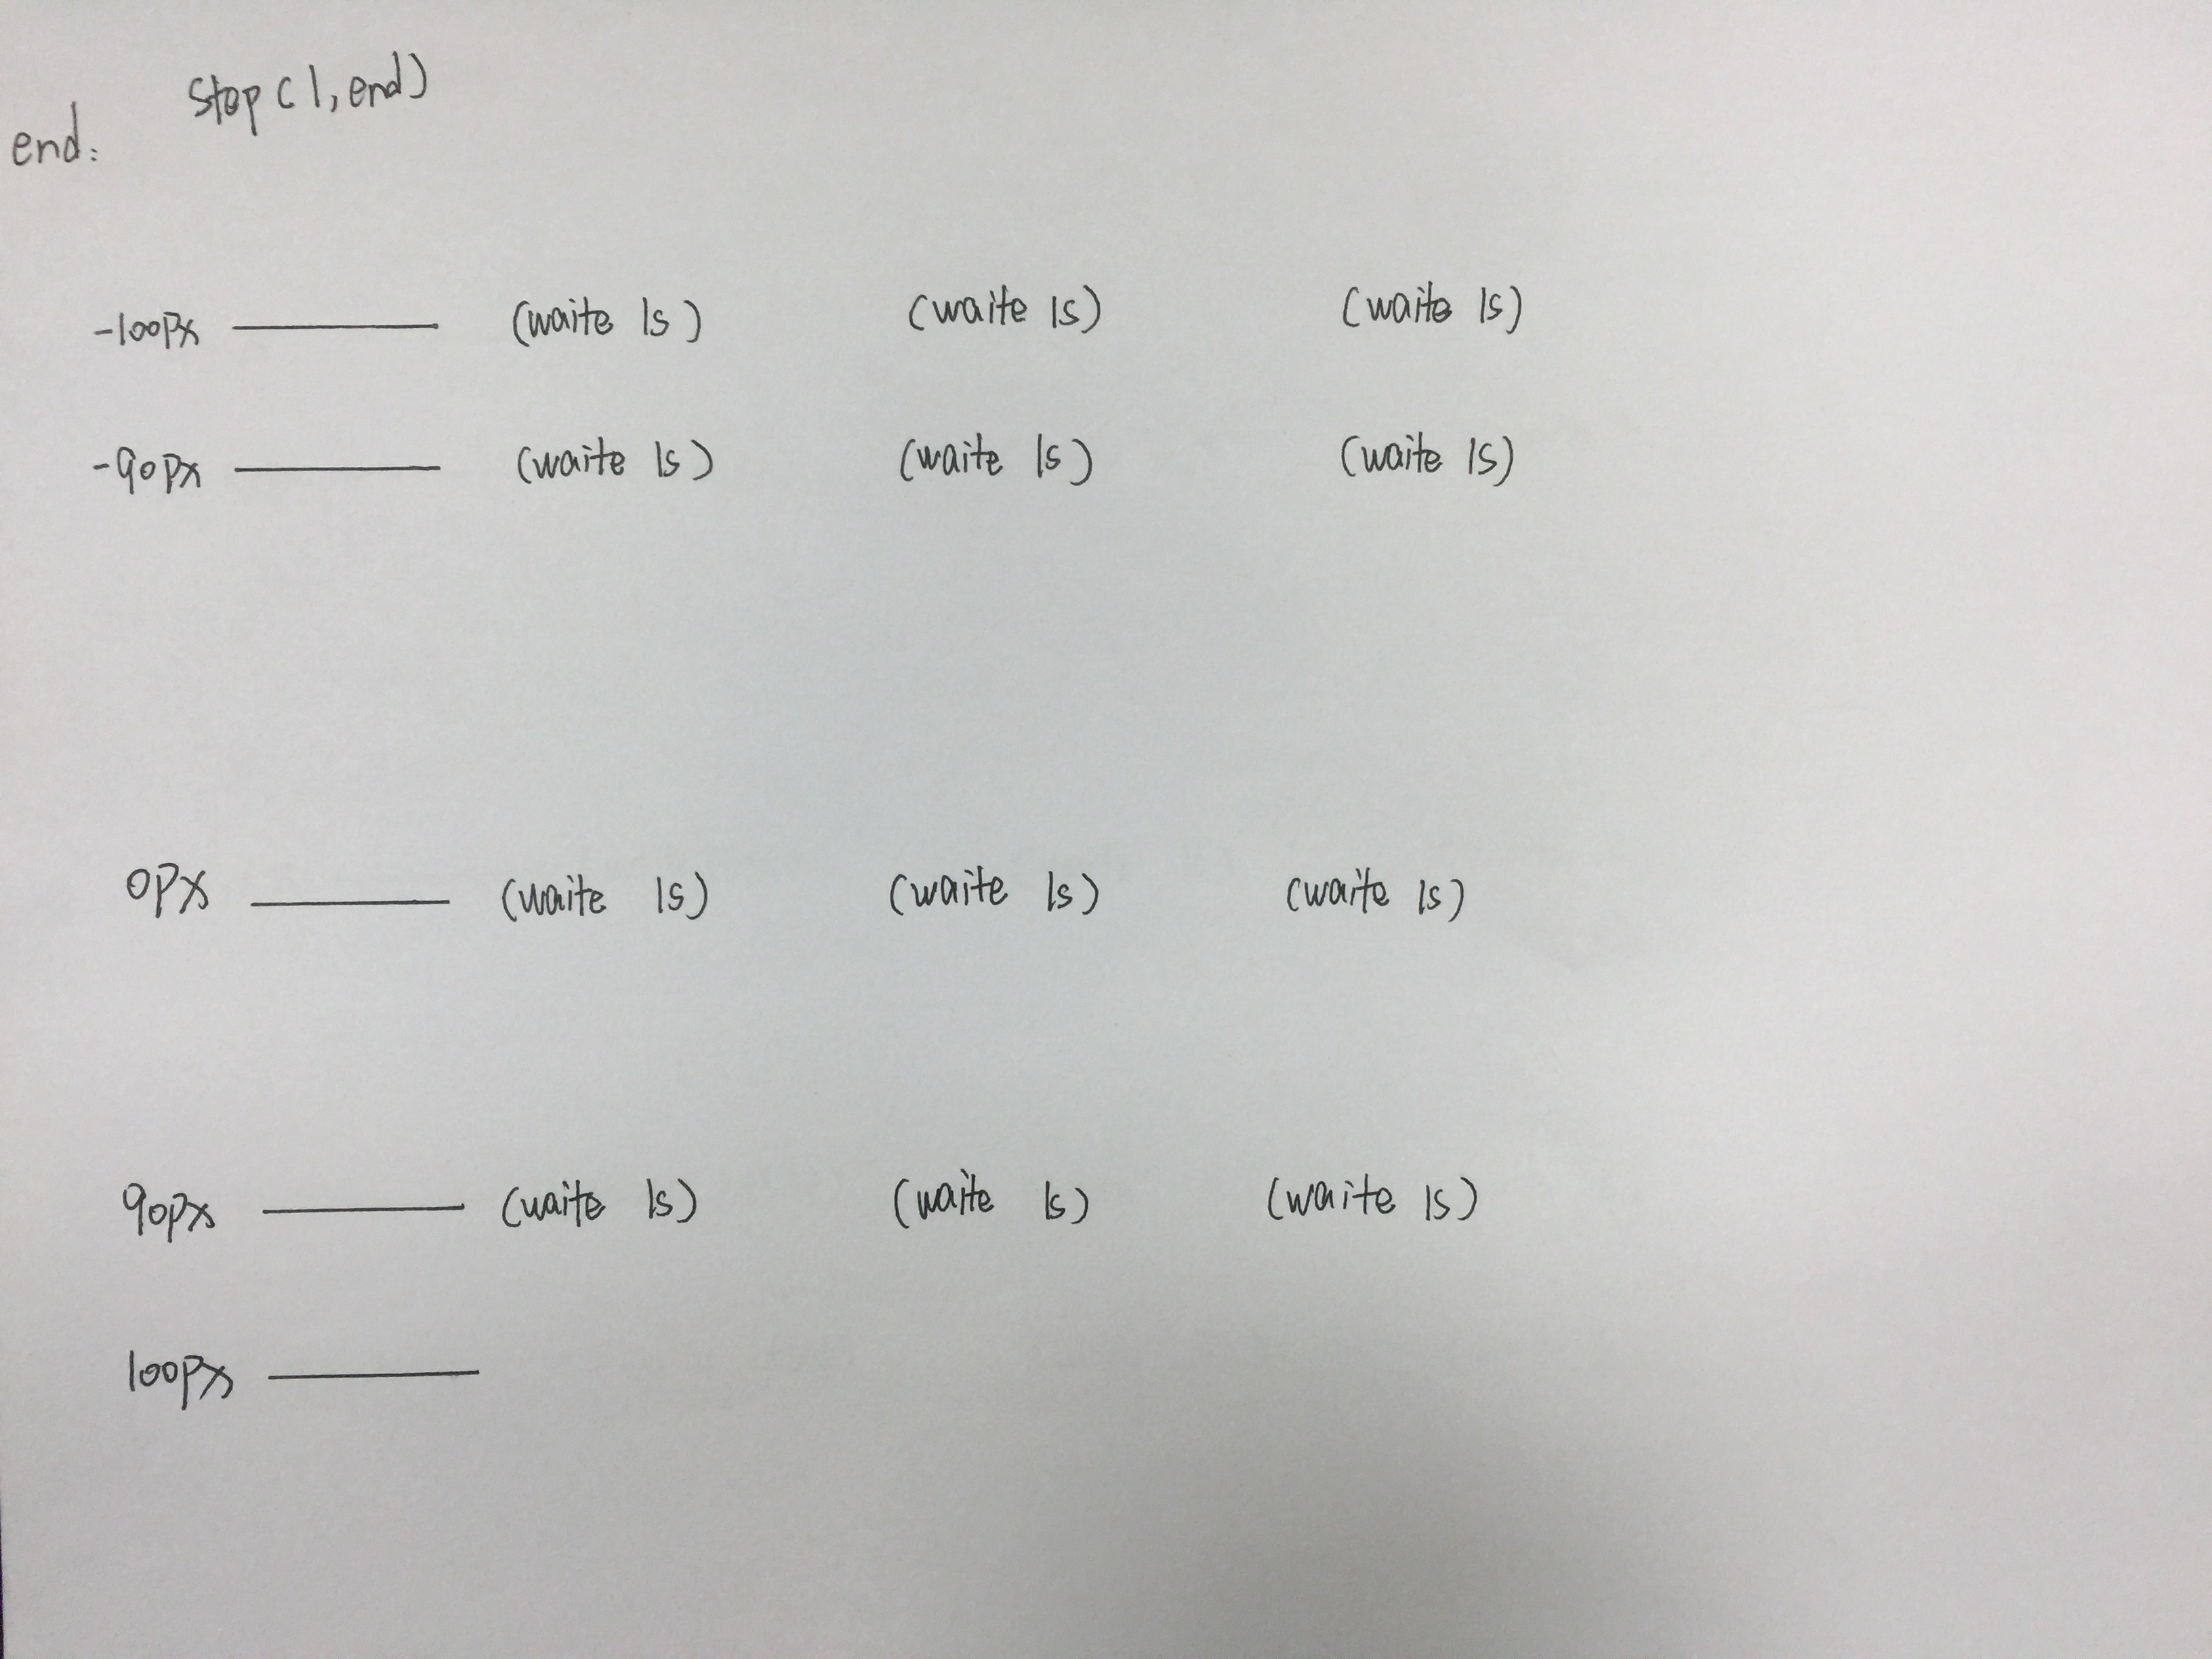 Stop(1,end)
end:
-100px (waite 1s) (waite 1s) (waite 1s)
-90px (waite 1s) (waite 1s) (waite 1s)
0px (waite 1s) (waite 1s) (waite 1s)
90px (waite 1s) (waite 1s) (waite 1s)
100px